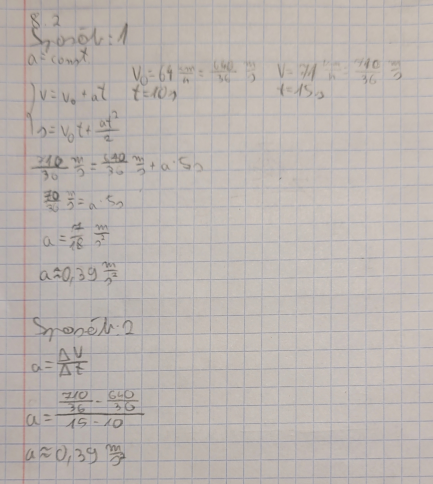 8.2
Sposób: 1
a = const.
v₀ = 64 km/h = 640/36 m/s v = 71 km/h = 710/36 m/s
t = 10s t = 15s
{ v = v₀ + at
s = v₀t + at²/2
710/36 m/s = 640/36 m/s + a · 5s
70/36 m/s = a · 5s
a = 7/18 m/s²
a ≈ 0,39 m/s²
Sposób: 2
a = ΔV/Δt
a = (710/36 - 640/36)/(15 - 10)
a ≈ 0,39 m/s²